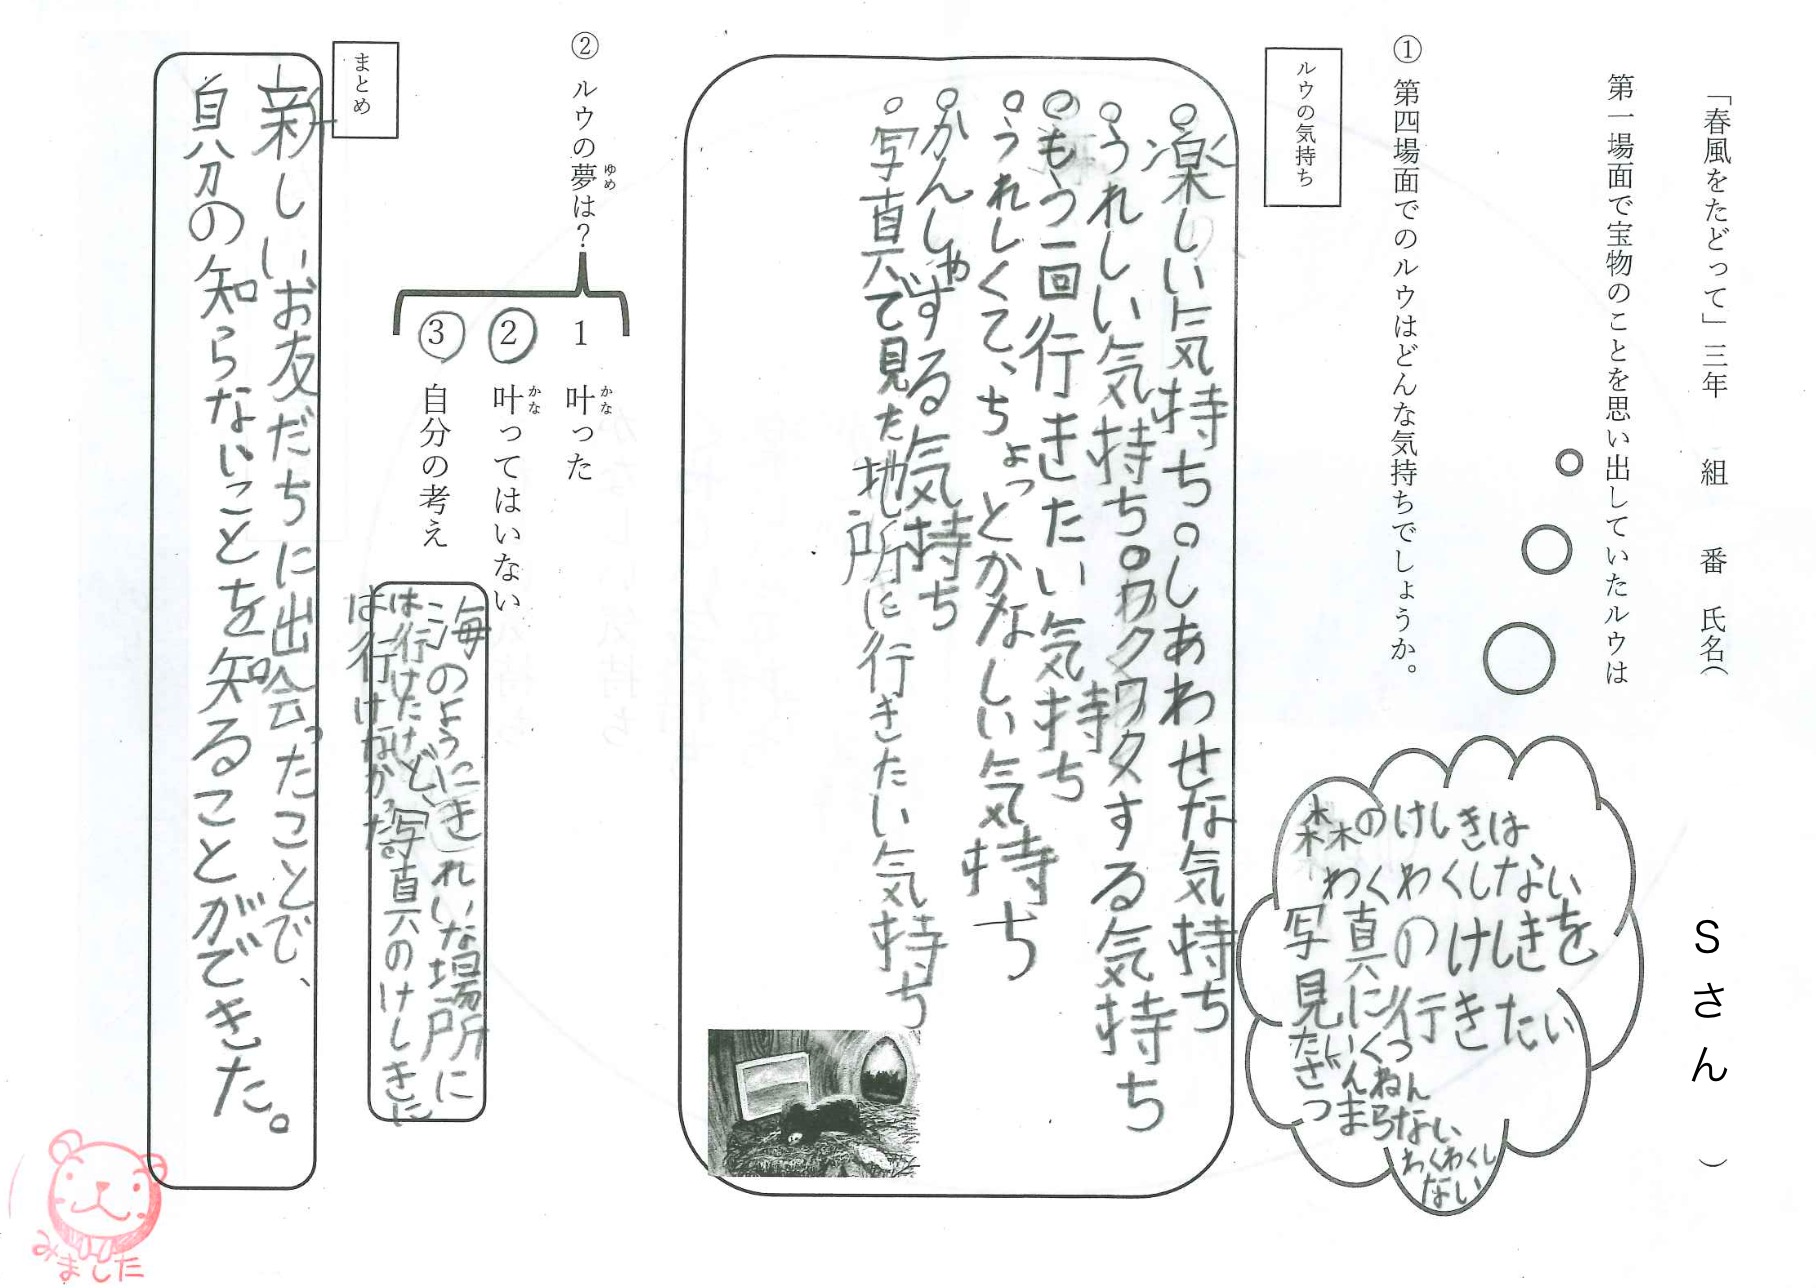 「春風をたどって」三年　組　番　氏名（　Sさん　）
第一場面で宝物のことを思い出していたルウは
森のけしきは
わくわくしない
写真のけしきを
見に行きたい
たいくつ
ざんねん
つまらない
わくわくし
ない
① 第四場面でのルウはどんな気持ちでしょうか。
ルウの気持ち
○楽しい気持ち○しあわせな気持ち
○うれしい気持ち○ワクワクする気持ち
○もう一回行きたい気持ち
○うれしくて、ちょっとかなしい気持ち
○かんしゃする気持ち
○写真で見た場所に行きたい気持ち
② ルウの夢は？
ゆめ
1 叶った
かな
② 叶ってはいない
かな
③ 自分の考え
海のようにきれいな場所に
は行けたけど、写真のけしきに
は行けなかった。
まとめ
新しいお友だちに出会ったことで、
自分の知らないことを知ることができた。
みました